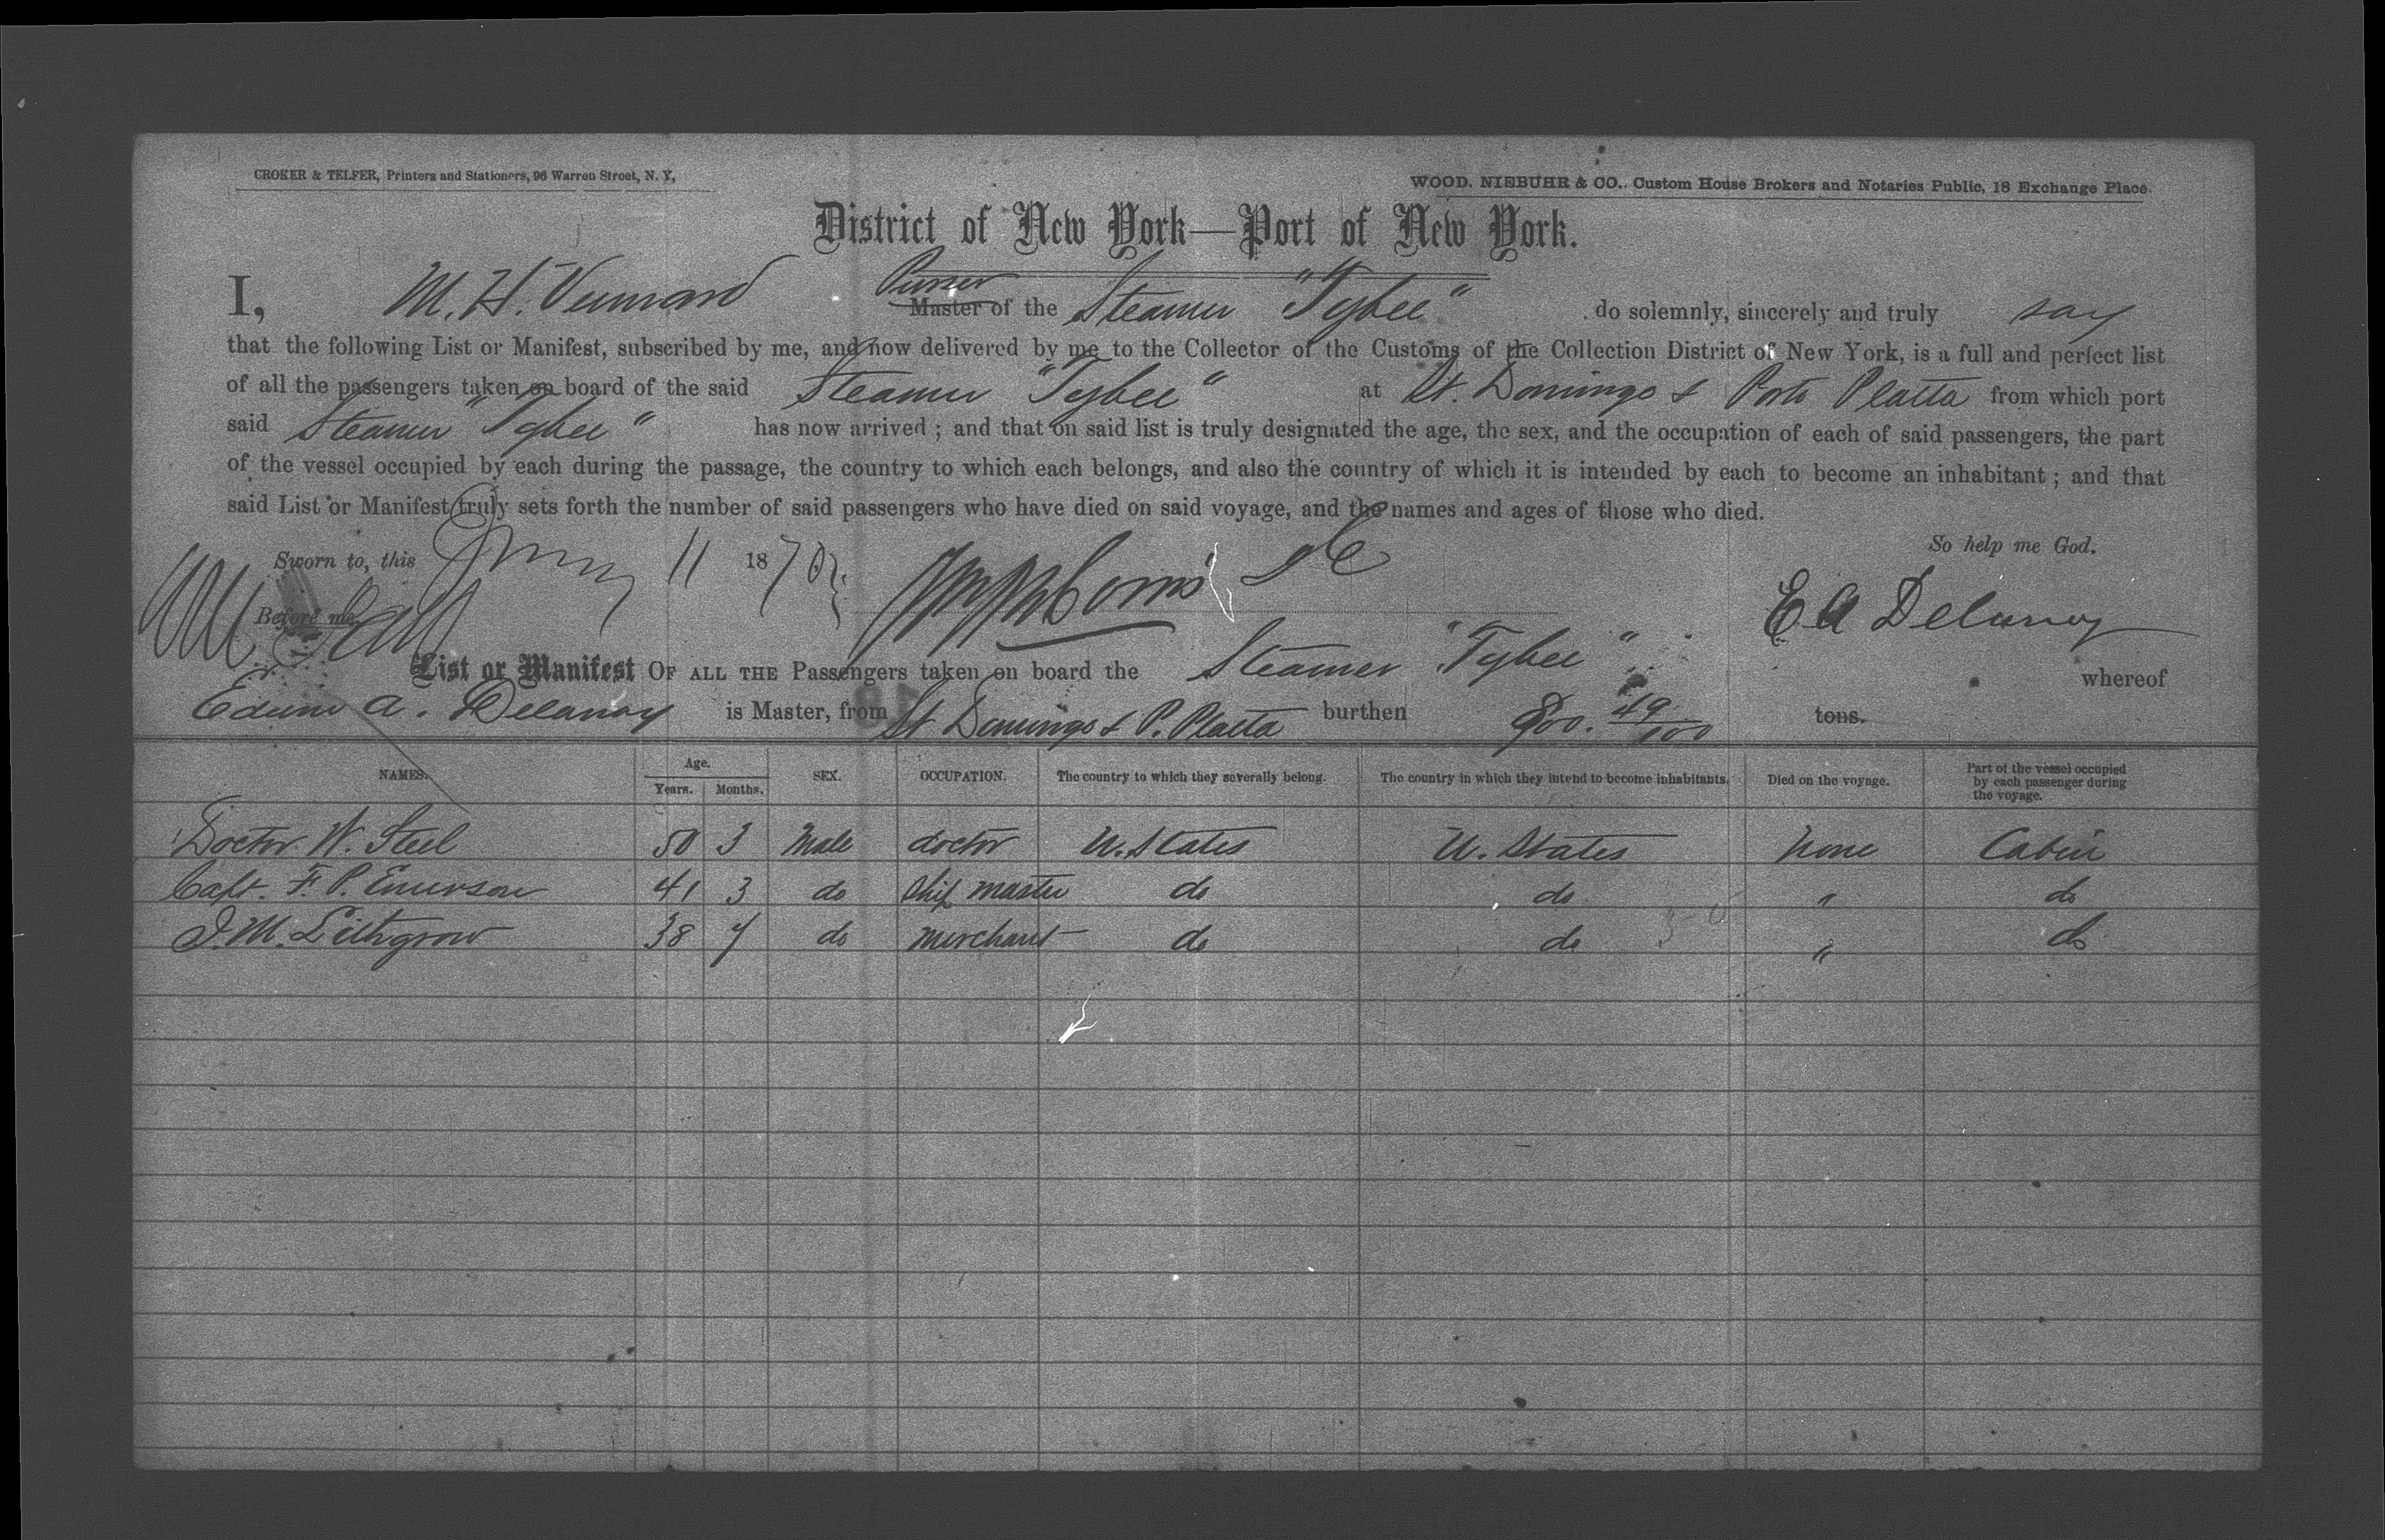 CROKER & TELFER, Printers and Stationers, 96 Warren Street, N. Y,
WOOD, NIEBUHR & CO., Custom House Brokers and Notaries Public, 18 Exchange Place.
District of New York—Port of New York.
I, M. H. Vennard Purser Master of the Steamer "Tybee" do solemnly, sincerely and truly say
that the following List or Manifest, subscribed by me, and now delivered by me to the Collector of the Customs of the Collection District of New York, is a full and perfect list
of all the passengers taken on board of the said Steamer "Tybee" at St. Domingo & Porto Platta from which port
said Steamer "Tybee" has now arrived ; and that on said list is truly designated the age, the sex, and the occupation of each of said passengers, the part
of the vessel occupied by each during the passage, the country to which each belongs, and also the country of which it is intended by each to become an inhabitant ; and that
said List or Manifest truly sets forth the number of said passengers who have died on said voyage, and the names and ages of those who died.
So help me God.
Sworn to, this 11 1870
Before me,
E A Delanoy
List or Manifest OF ALL THE Passengers taken on board the Steamer "Tybee" whereof
Edwin A. Delanoy is Master, from St Domingo & P. Platta burthen 49/100 tons.
NAMES. Age. Years. Months. SEX. OCCUPATION. The country to which they severally belong. The country in which they intend to become inhabitants. Died on the voyage. Part of the vessel occupied by each passenger during the voyage.
Doctor W. Steel 50 3 Male doctor U. States U. States None Cabin
Capt. F. P. Emerson 41 3 do Ship master do do " do
J. M. Lithgow 38 7 do merchant do do " do